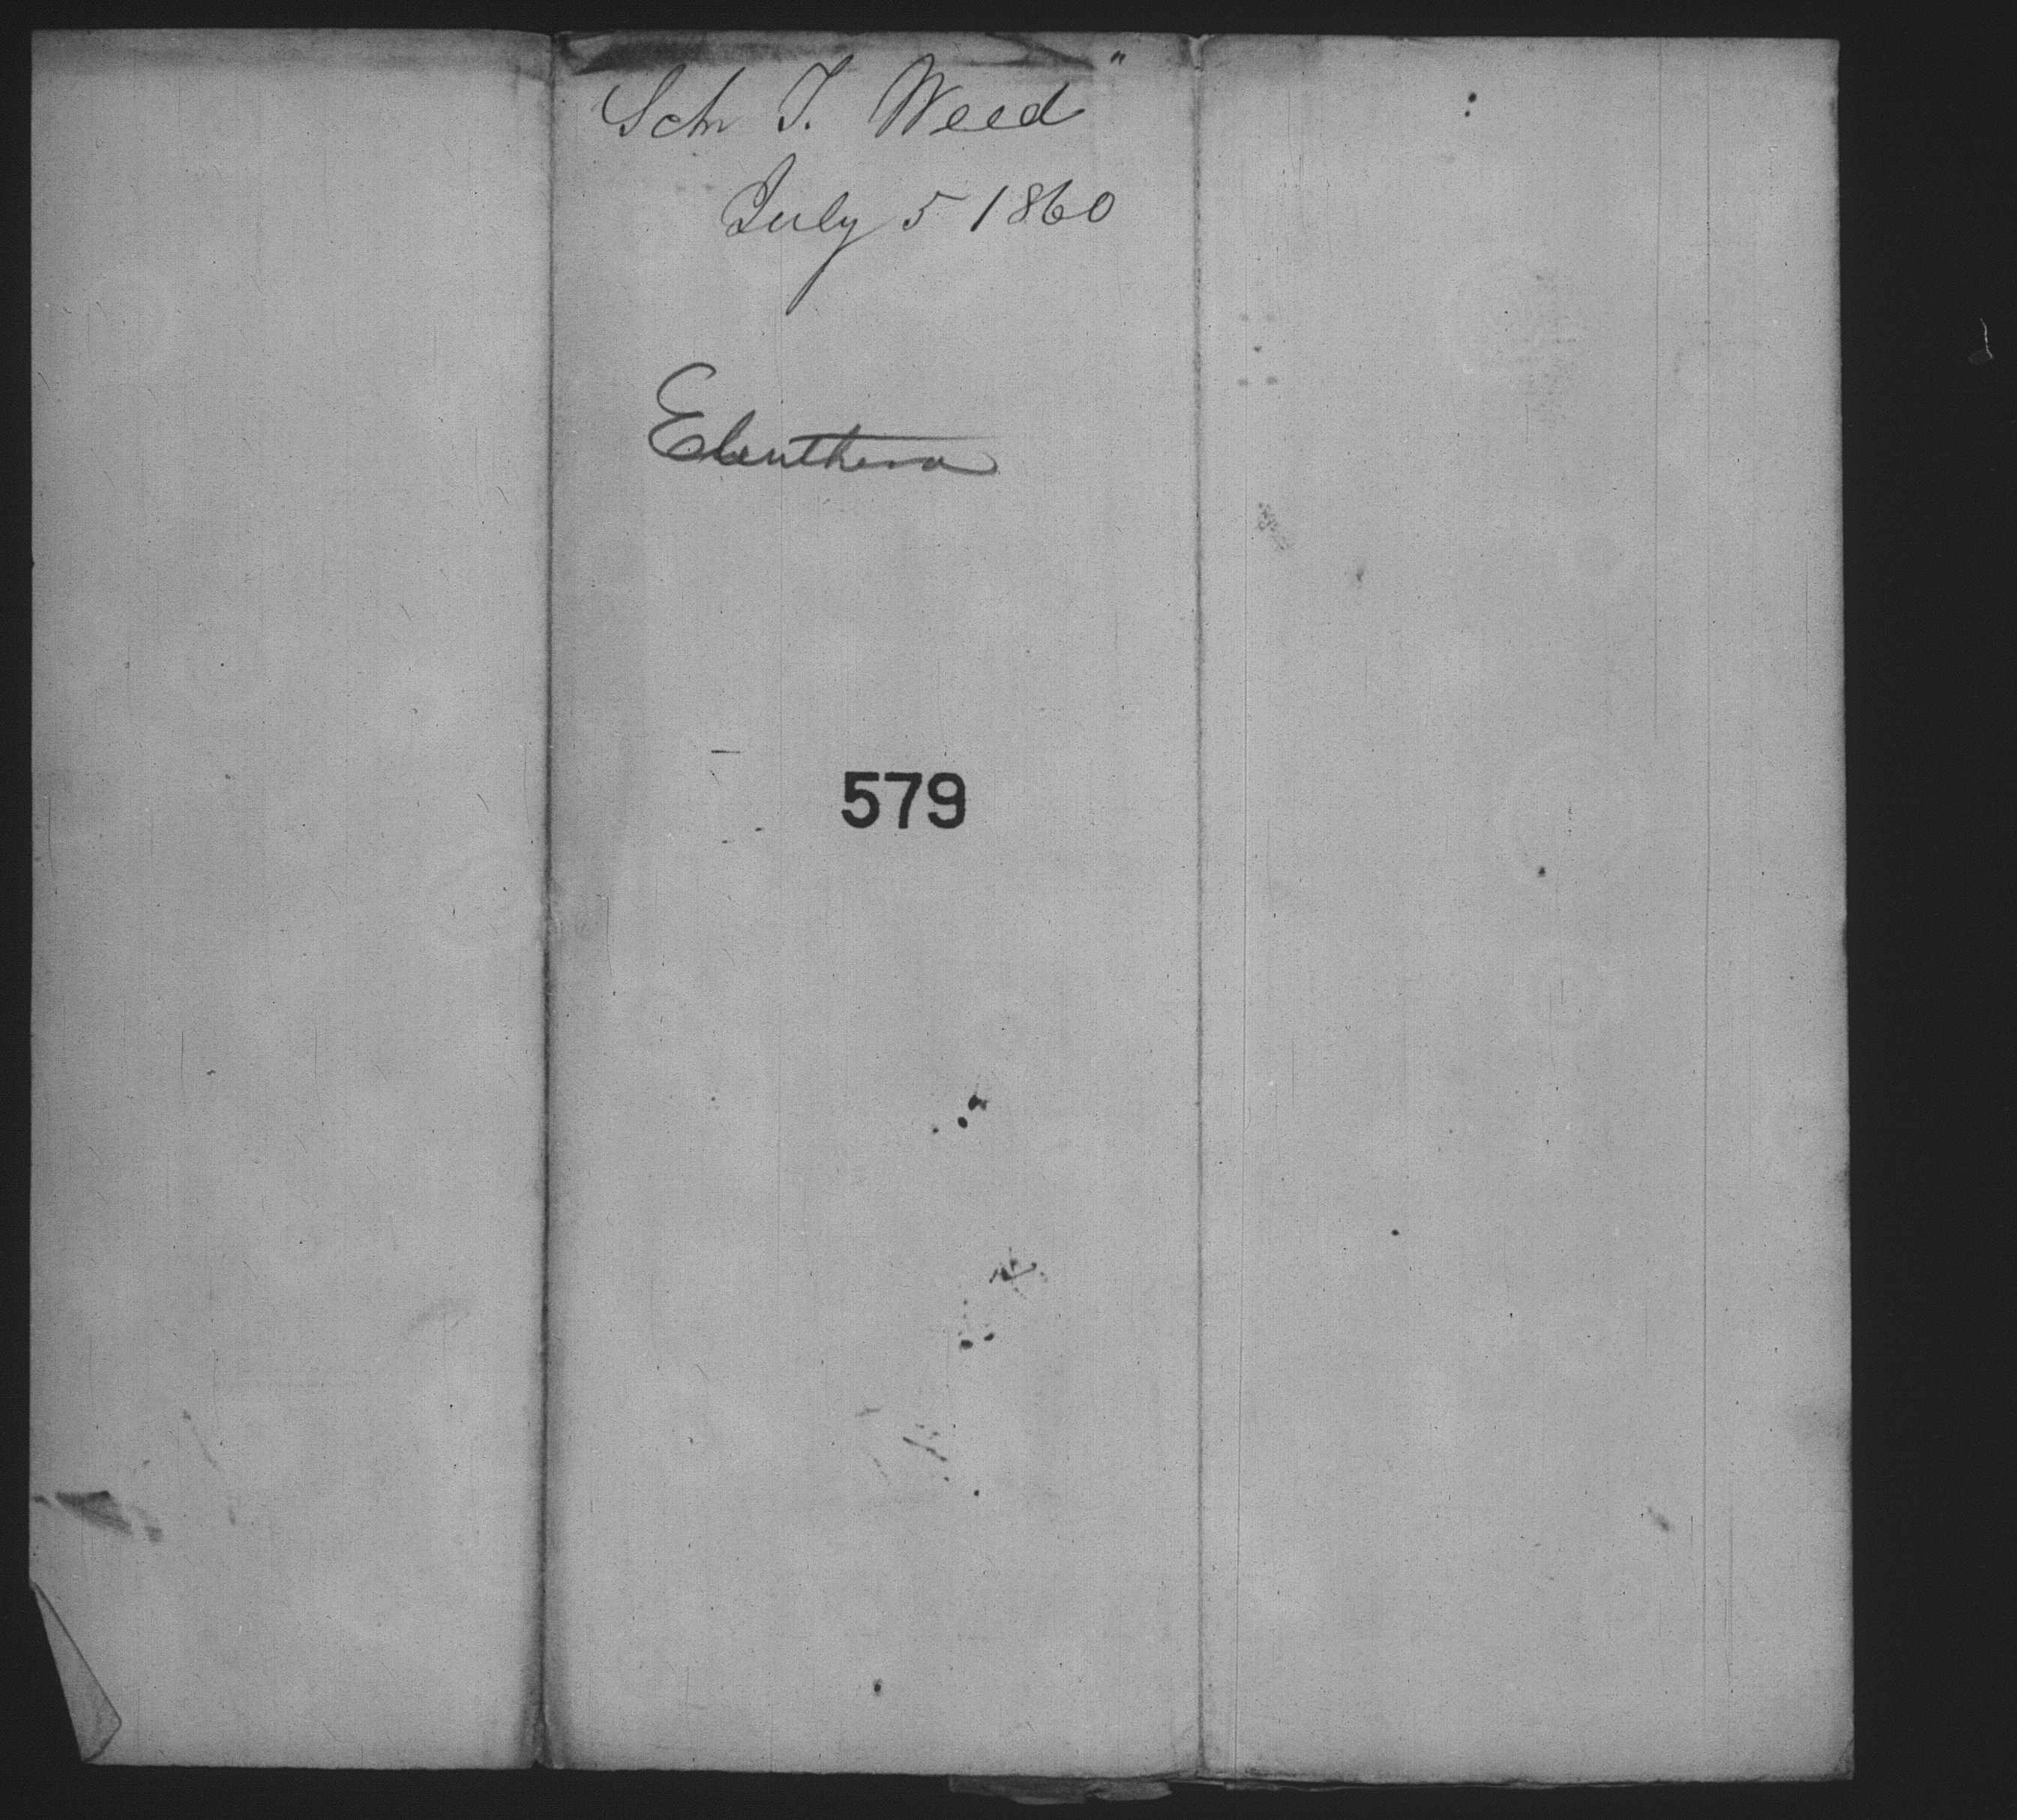 Schr T. Weed"
July 5 1860
Eleuthera
579